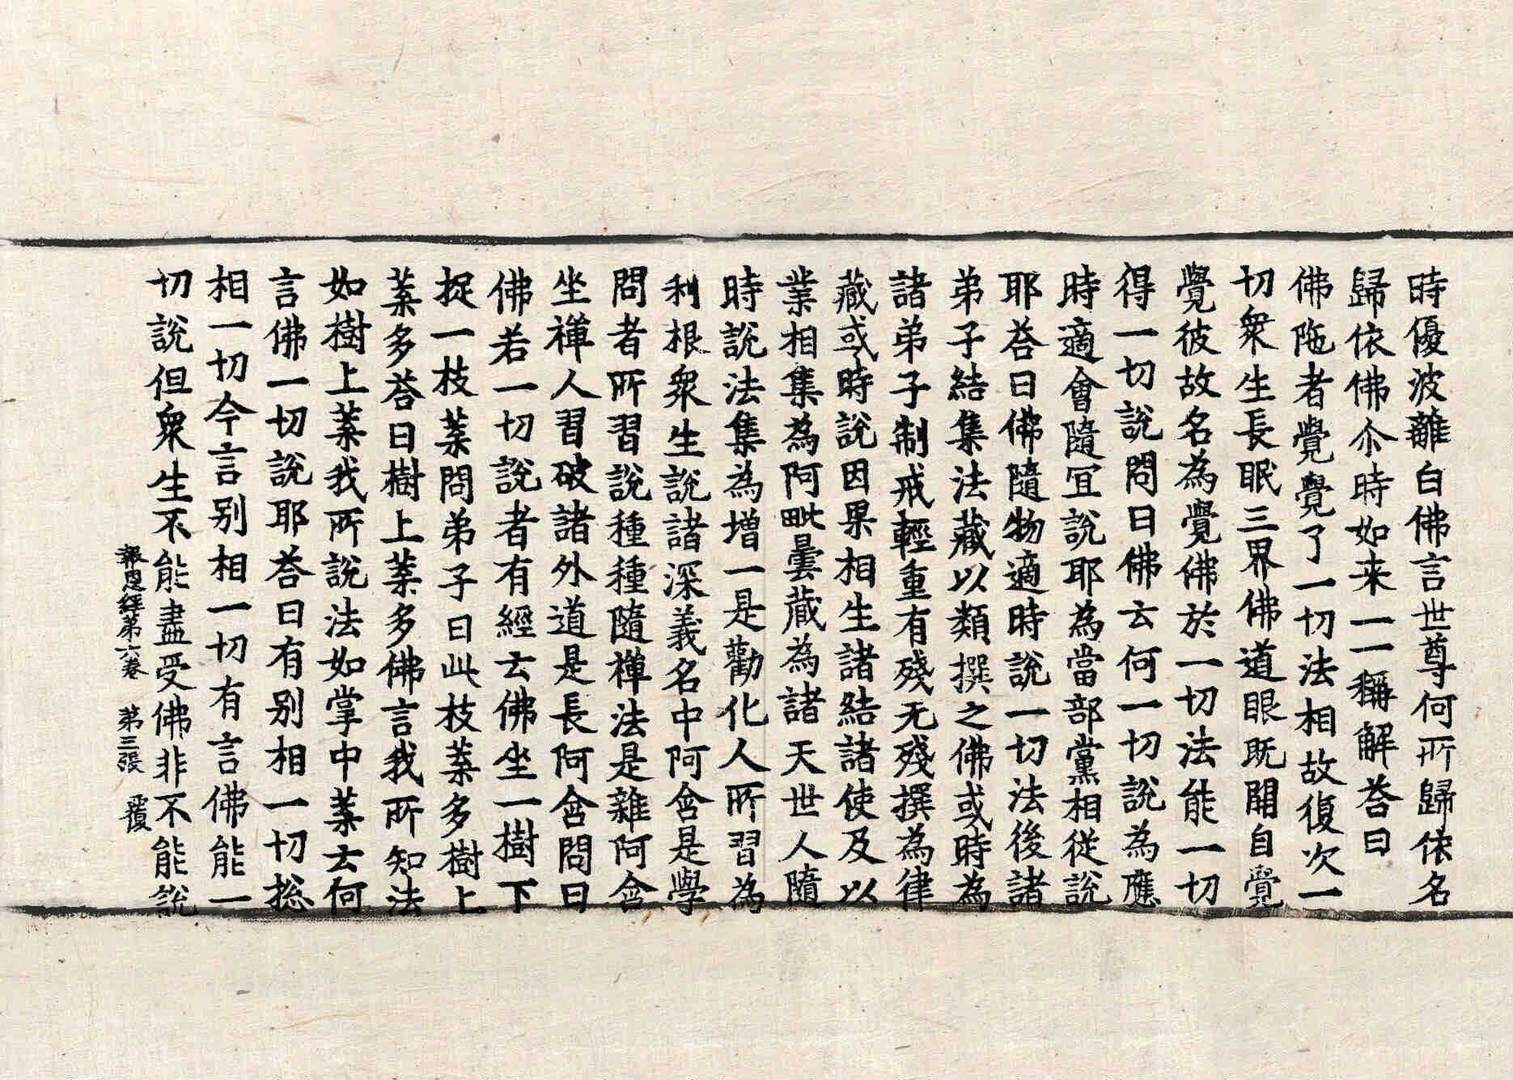 時優波離白佛言世尊何所歸依名
歸依佛尒時如来一一稱解荅曰
佛陁者覺覺了一切法相故復次一
切衆生長眠三界佛道眼既開自覺
覺彼故名為覺佛於一切法能一切
得一切說問曰佛云何一切說為應
時適會隨冝說耶為當部黨相従說
耶荅曰佛隨物適時說一切法後諸
弟子結集法藏以類撰之佛或時為
諸弟子制戒輕重有殘无殘撰為律
藏或時說因果相生諸結諸使及以
業相集為阿毗曇藏為諸天世人隨
時說法集為增一是勸化人所習為
利根衆生說諸深義名中阿含是學
問者所習說種種隨禪法是雜阿含
坐禪人習破諸外道是長阿含問曰
佛若一切說者有經云佛坐一樹下
捉一枝葉問弟子曰此枝葉多樹上
葉多荅曰樹上葉多佛言我所知法
如樹上葉我所說法如掌中葉云何
言佛一切說耶荅曰有别相一切捴
相一切今言别相一切有言佛能一
切說但衆生不能盡受佛非不能說
報恩經第六卷　第三張　覆